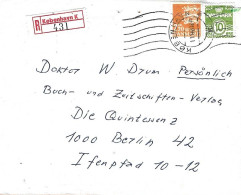 R København K.
431
DANMARK
10
Doktor W. Drum - Persönlich
Buch- und Zeitschriften-Verlag
Die Quintessenz
1000 Berlin 42
Ifenpfad 10-12